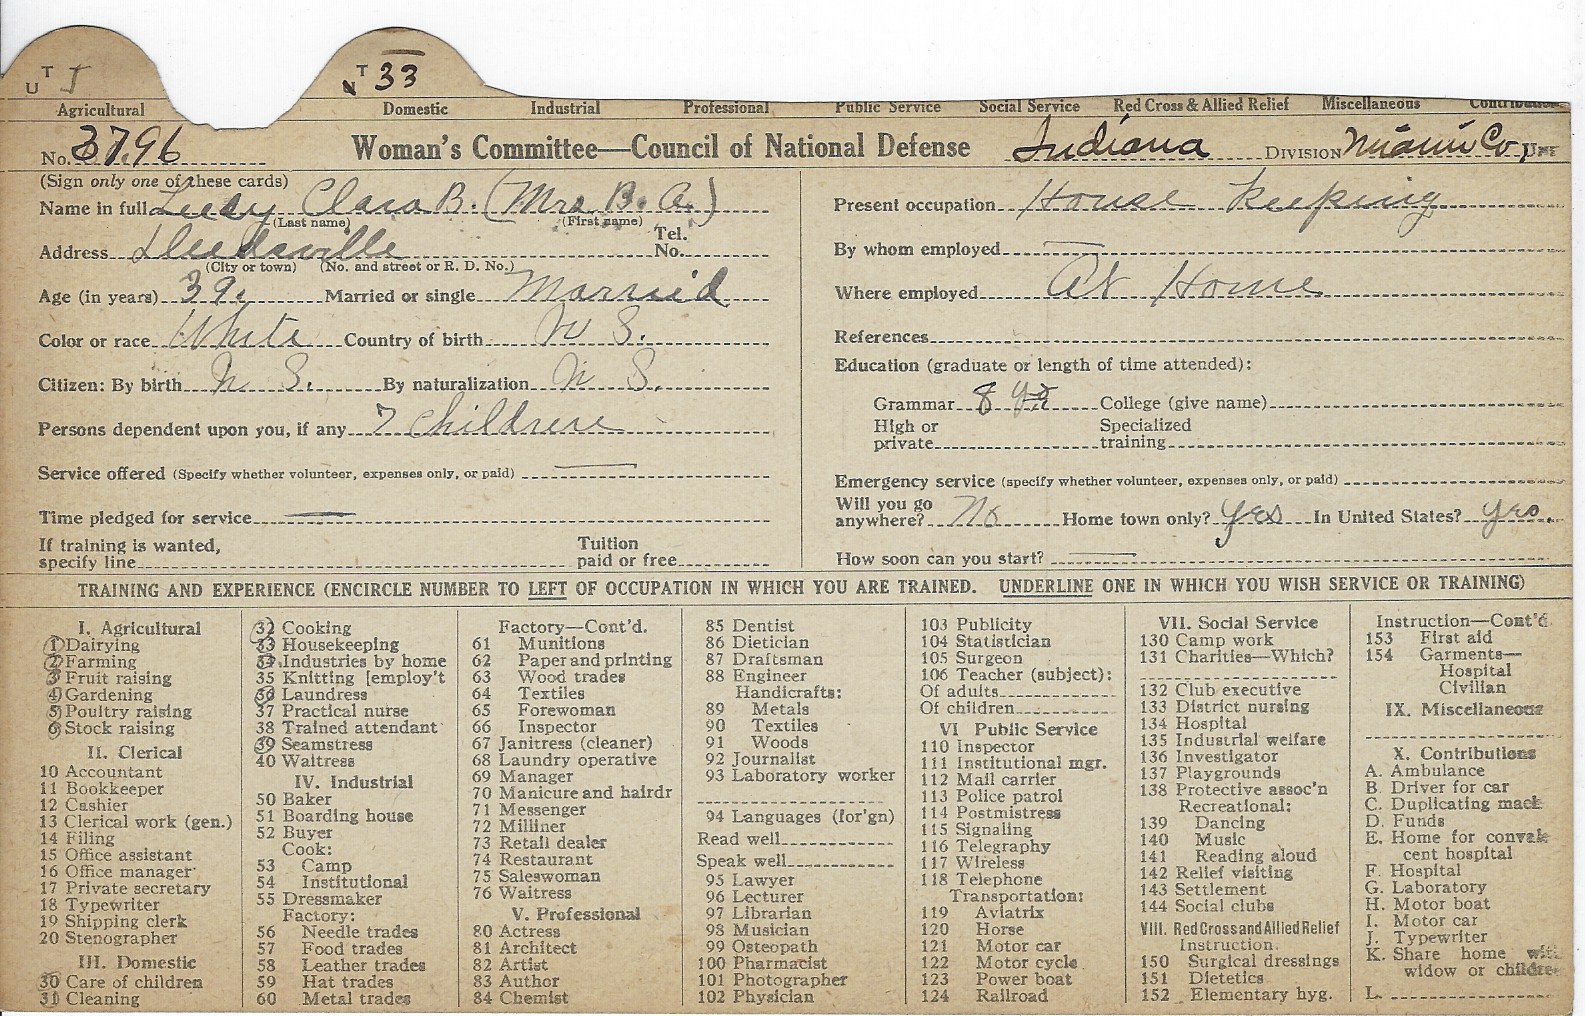 U T T
N T 33
Agricultural Domestic Industrial Professional Public Service Social Service Red Cross & Allied Relief Miscellaneous
No. 3796 Woman's Committee—Council of National Defense Indiana DIVISION Miami Co.
(Sign only one of these cards)
Name in full Clara B. (Mrs. B. A.)
(Last name) (First name)
Address Deedsville Tel. No.
(City or town) (No. and street or R. D. No.)
Age (in years) 39. Married or single Married
Color or race White Country of birth U S.
Citizen: By birth U S. By naturalization U S.
Persons dependent upon you, if any 7 Children
Service offered (Specify whether volunteer, expenses only, or paid) —
Time pledged for service —
If training is wanted, specify line Tuition paid or free
Present occupation House Keeping
By whom employed —
Where employed At Home
References
Education (graduate or length of time attended):
Grammar 8 yrs College (give name)
High or private Specialized training
Emergency service (specify whether volunteer, expenses only, or paid)
Will you go anywhere? No Home town only? yes In United States? yes.
How soon can you start? —
TRAINING AND EXPERIENCE (ENCIRCLE NUMBER TO LEFT OF OCCUPATION IN WHICH YOU ARE TRAINED. UNDERLINE ONE IN WHICH YOU WISH SERVICE OR TRAINING)
I. Agricultural
1 Dairying
2 Farming
3 Fruit raising
4 Gardening
5 Poultry raising
6 Stock raising
II. Clerical
10 Accountant
11 Bookkeeper
12 Cashier
13 Clerical work (gen.)
14 Filing
15 Office assistant
16 Office manager
17 Private secretary
18 Typewriter
19 Shipping clerk
20 Stenographer
III. Domestic
30 Care of children
31 Cleaning
32 Cooking
33 Housekeeping
34 Industries by home
35 Knitting [employ't
36 Laundress
37 Practical nurse
38 Trained attendant
39 Seamstress
40 Waitress
IV. Industrial
50 Baker
51 Boarding house
52 Buyer
Cook:
53 Camp
54 Institutional
55 Dressmaker
Factory:
56 Needle trades
57 Food trades
58 Leather trades
59 Hat trades
60 Metal trades
Factory—Cont'd.
61 Munitions
62 Paper and printing
63 Wood trades
64 Textiles
65 Forewoman
66 Inspector
67 Janitress (cleaner)
68 Laundry operative
69 Manager
70 Manicure and hairdr
71 Messenger
72 Milliner
73 Retail dealer
74 Restaurant
75 Saleswoman
76 Waitress
V. Professional
80 Actress
81 Architect
82 Artist
83 Author
84 Chemist
85 Dentist
86 Dietician
87 Draftsman
88 Engineer
Handicrafts:
89 Metals
90 Textiles
91 Woods
92 Journalist
93 Laboratory worker
94 Languages (for'gn)
Read well
Speak well
95 Lawyer
96 Lecturer
97 Librarian
98 Musician
99 Osteopath
100 Pharmacist
101 Photographer
102 Physician
103 Publicity
104 Statistician
105 Surgeon
106 Teacher (subject):
Of adults
Of children
VI Public Service
110 Inspector
111 Institutional mgr.
112 Mail carrier
113 Police patrol
114 Postmistress
115 Signaling
116 Telegraphy
117 Wireless
118 Telephone
Transportation:
119 Aviatrix
120 Horse
121 Motor car
122 Motor cycle
123 Power boat
124 Railroad
VII. Social Service
130 Camp work
131 Charities—Which?
132 Club executive
133 District nursing
134 Hospital
135 Industrial welfare
136 Investigator
137 Playgrounds
138 Protective assoc'n
Recreational:
139 Dancing
140 Music
141 Reading aloud
142 Relief visiting
143 Settlement
144 Social clubs
VIII. Red Cross and Allied Relief
Instruction.
150 Surgical dressings
151 Dietetics
152 Elementary hyg.
Instruction—Cont'd.
153 First aid
154 Garments—
Hospital
Civilian
IX. Miscellaneous
X. Contributions
A. Ambulance
B. Driver for car
C. Duplicating mach
D. Funds
E. Home for convales
cent hospital
F. Hospital
G. Laboratory
H. Motor boat
I. Motor car
J. Typewriter
K. Share home with
widow or children
L.